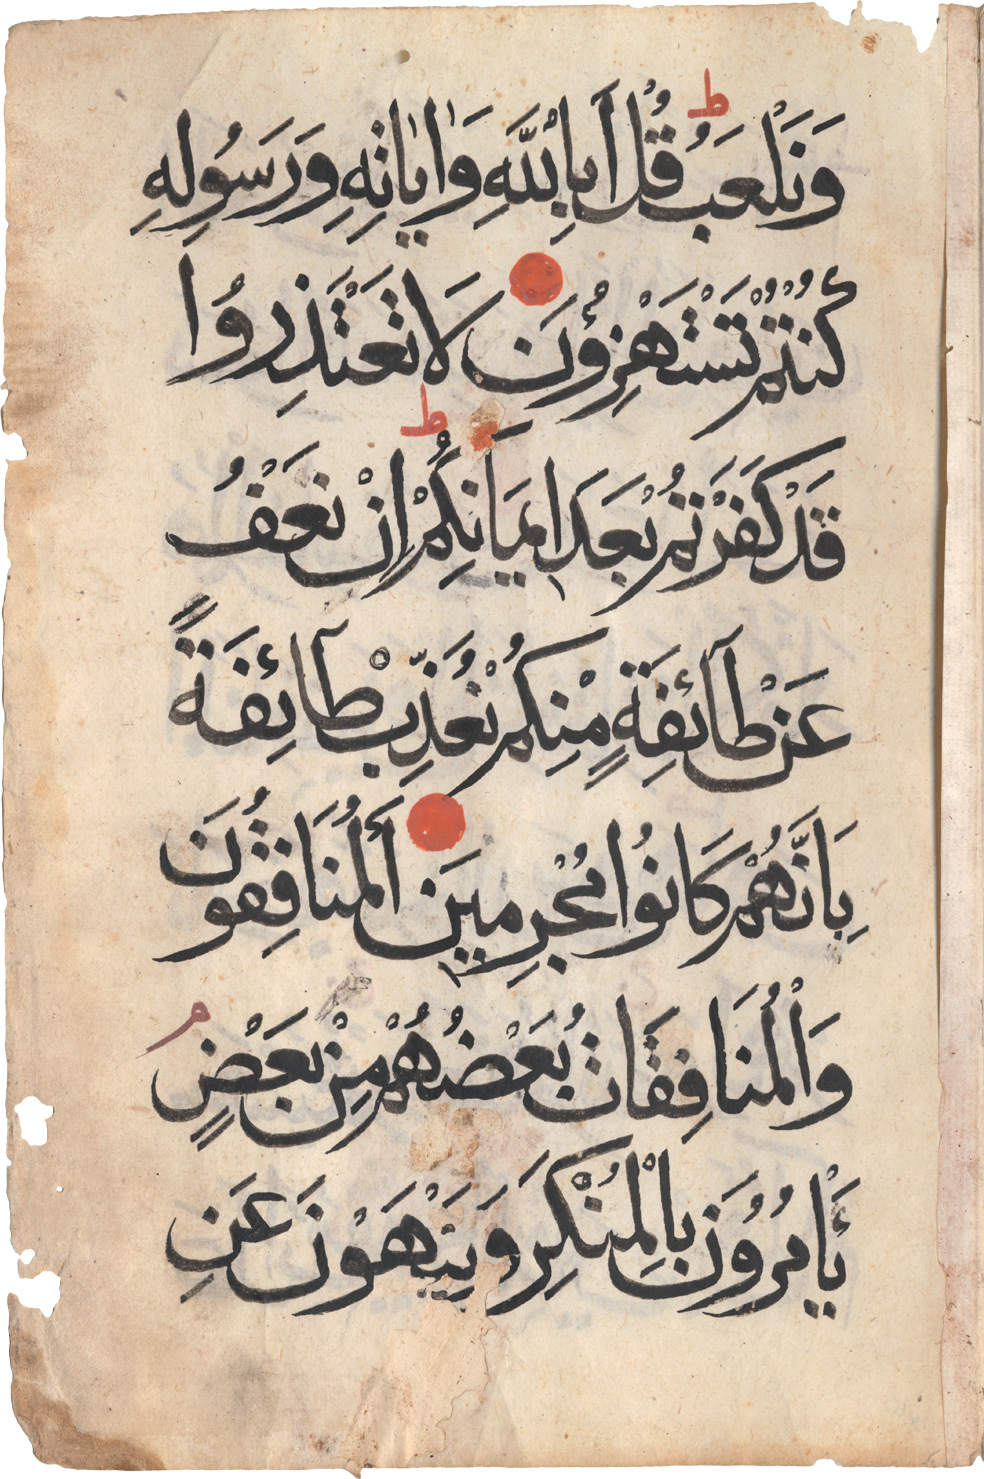 وَنَلْعَبُ ط قُلْ اَبِاللّٰهِ وَاٰيَاتِهِ وَرَسُولِهِ
كُنْتُمْ تَسْتَهْزِؤُنَ لَا تَعْتَذِرُوا
قَدْ كَفَرْتُمْ بَعْدَ اِيمَانِكُمْ ط اِنْ نَعْفُ
عَنْ طَآئِفَةٍ مِنْكُمْ نُعَذِّبْ طَآئِفَةً
بِاَنَّهُمْ كَانُوا مُجْرِمِينَ اَلْمُنَافِقُونَ
وَالْمُنَافِقَاتُ بَعْضُهُمْ مِنْ بَعْضٍ م
يَأْمُرُونَ بِالْمُنْكَرِ وَيَنْهَوْنَ عَنِ